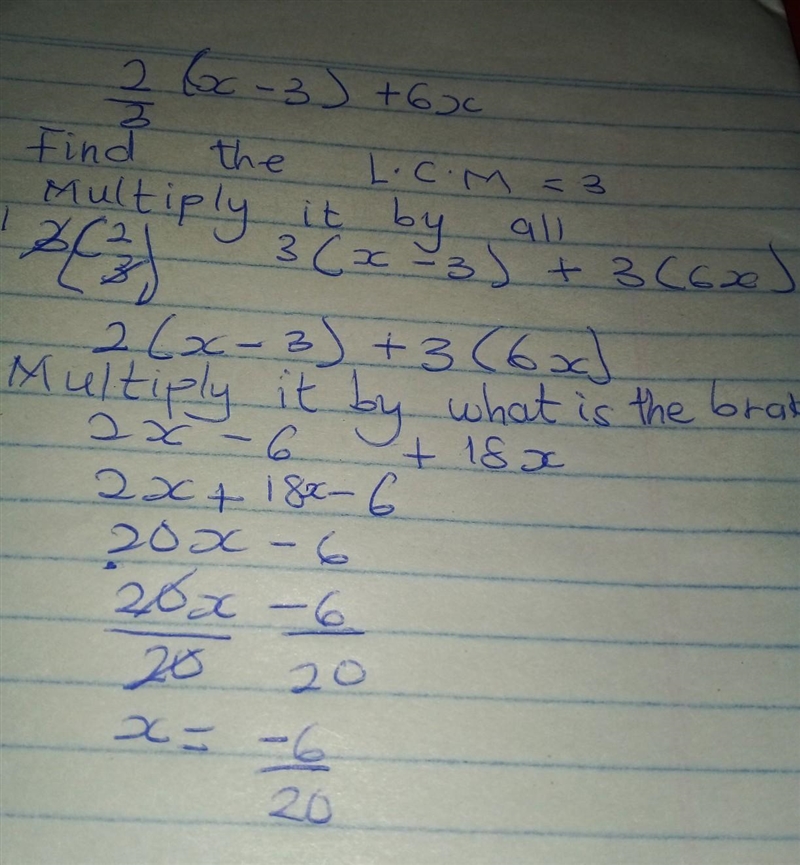 2/3 (x - 3) + 6x
Find the L.C.M = 3
Multiply it by all
1 3(2/3) 3(x - 3) + 3(6x)
2(x - 3) + 3(6x)
Multiply it by what is the brak
2x - 6 + 18x
2x + 18x - 6
20x - 6
20x/20 -6/20
x = -6/20